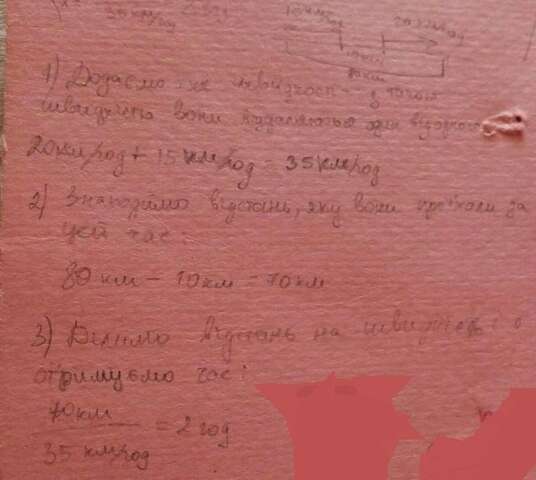 35 км/год
15 км/год 20 км/год
10км
80км
1) Додаємо їх швидкості - з такою
швидкістю вони віддаляються один від одного
20км/год + 15 км/год = 35 км/год
2) Знаходимо відстань, яку вони проїхали за
цей час:
80 км - 10 км = 70 км
3) Ділимо відстань на швидкість і
отримуємо час:
70 км
= 2 год
35 км/год